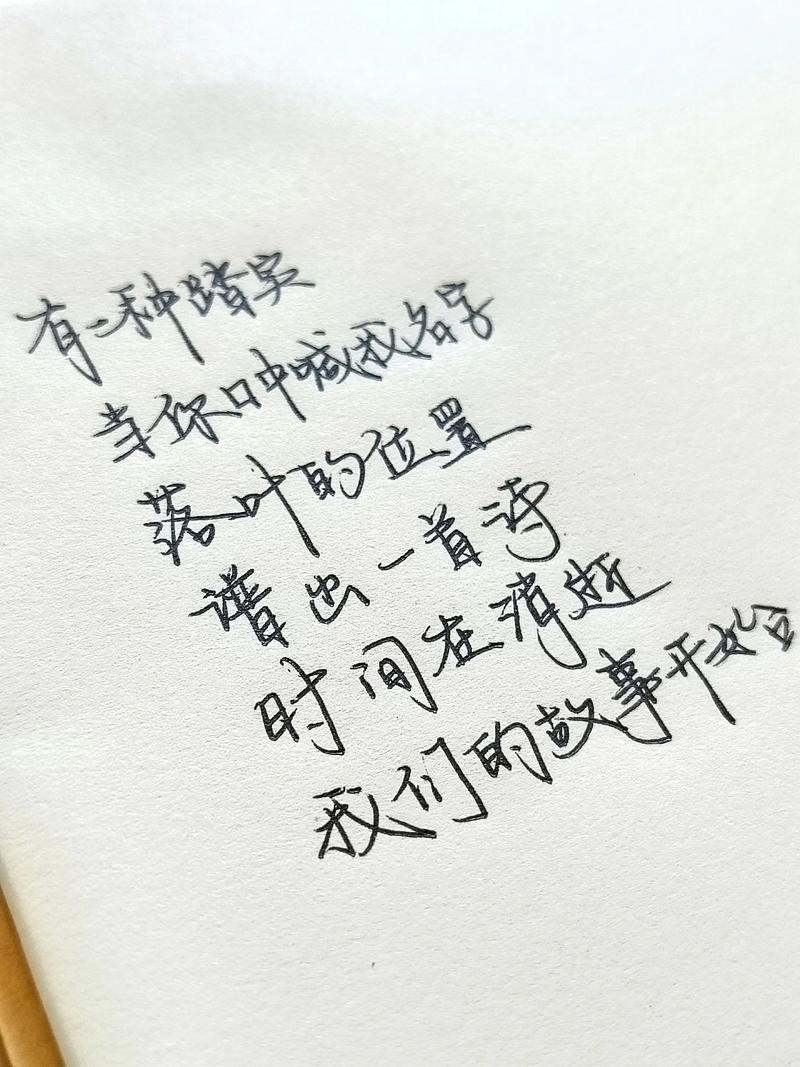 有一种踏实
当你口中喊我名字
落叶的位置
谱出一首诗
时间在消逝
我们的故事开始